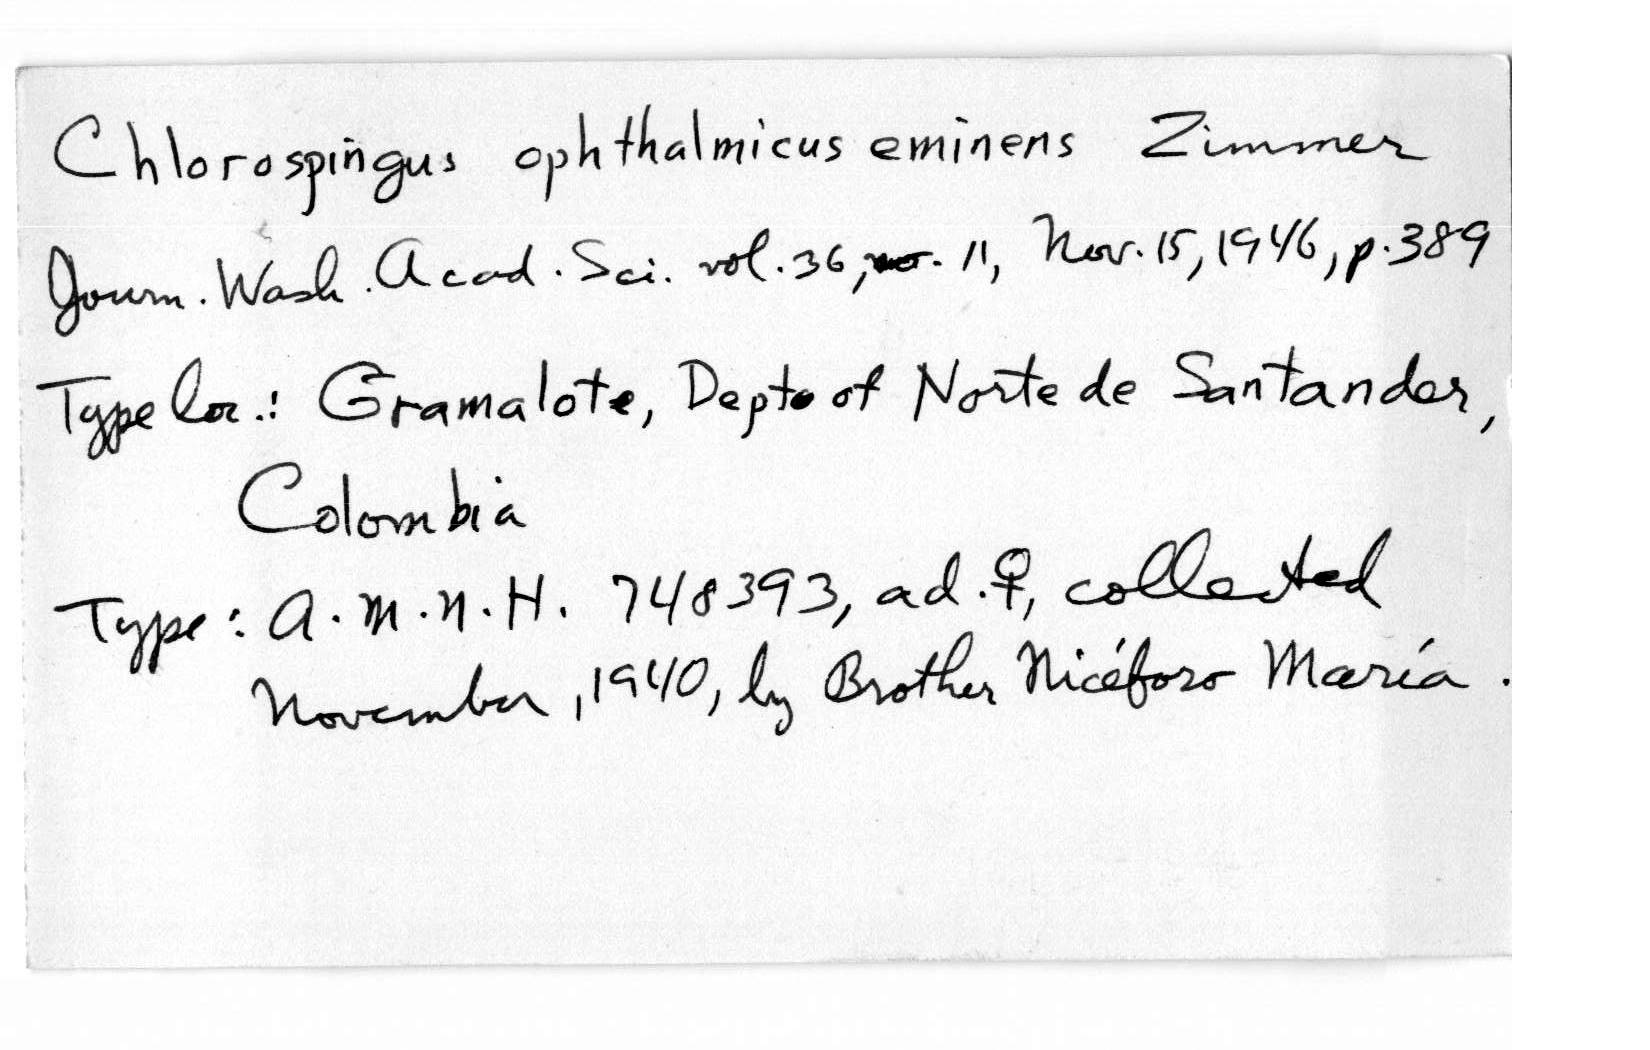 Chlorospingus ophthalmicus eminens Zimmer
Journ. Wash. Acad. Sci. vol. 36, no. 11, Nov. 15, 1946, p. 389
Type loc.: Gramalote, Depto of Norte de Santander,
Colombia
Type: A.M.N.H. 748393, ad. ♀, collected
November, 1940, by Brother Nicéforo María.